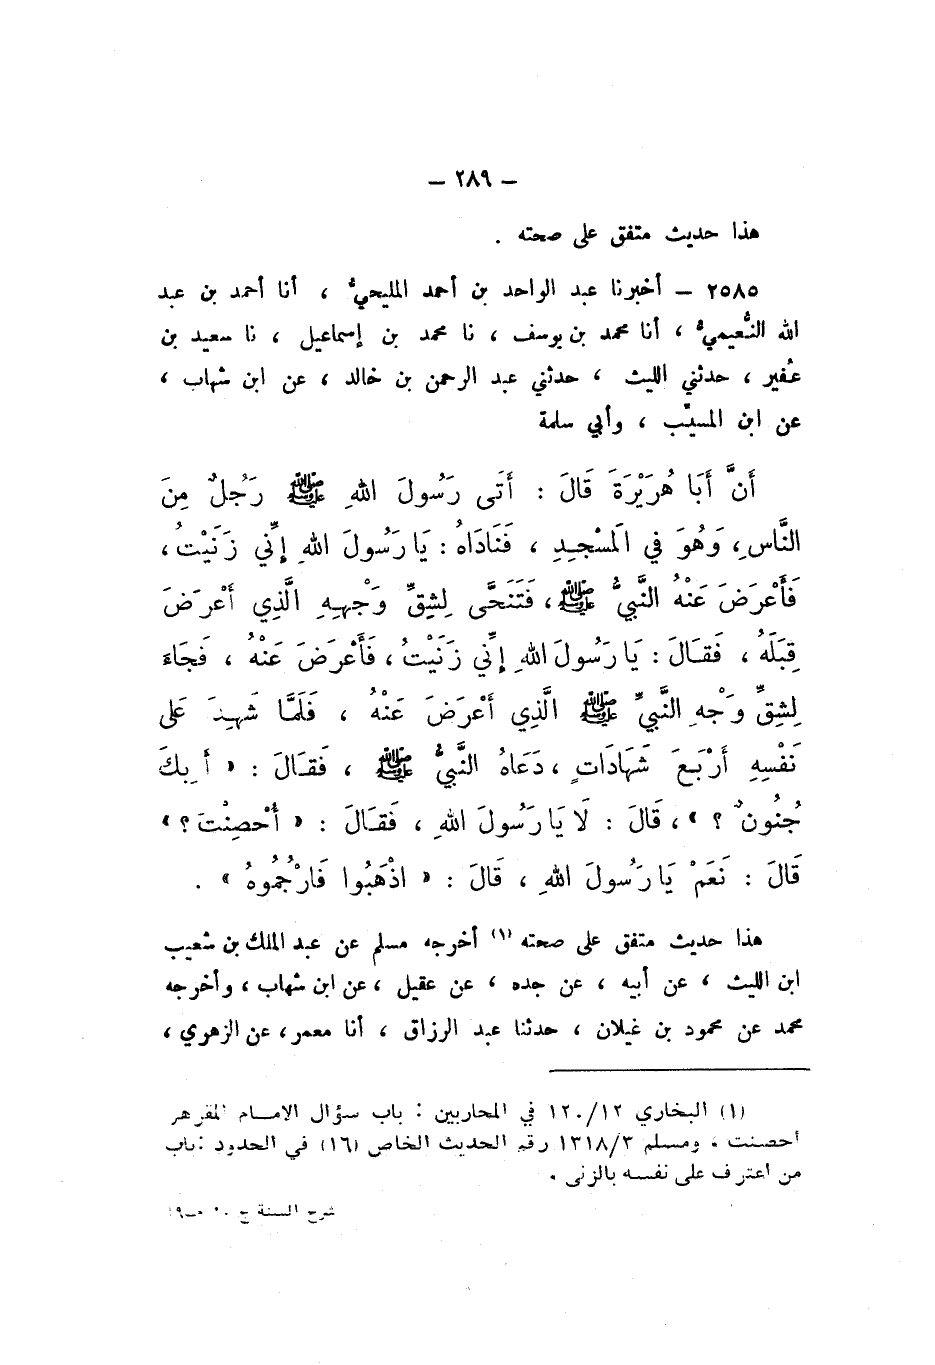 — ٢٨٩ —
هذا حديث متفق على صحته .
٢٥٨٥ — أخبرنا عبد الواحد بن أحمد المليحيُّ ، أنا أحمد بن عبد
الله النُّعيميُّ ، أنا محمد بن يوسف ، نا محمد بن إسماعيل ، نا سعيد بن
عُفير ، حدثني الليث ، حدثني عبد الرحمن بن خالد ، عن ابن شهاب ،
عن ابن المسيّب ، وأبي سلمة
أَنَّ أَبَا هُرَيْرَةَ قَالَ : أَتَى رَسُولَ اللهِ ﷺ رَجُلٌ مِنَ
النَّاسِ، وَهُوَ فِي المَسْجِدِ ، فَنَادَاهُ : يَا رَسُولَ اللهِ إِنِّي زَنَيْتُ ،
فَأَعْرَضَ عَنْهُ النَّبِيُّ ﷺ ، فَتَنَحَّى لِشِقِّ وَجْهِهِ الَّذِي أَعْرَضَ
قِبَلَهُ ، فَقَالَ : يَا رَسُولَ اللهِ إِنِّي زَنَيْتُ ، فَأَعْرَضَ عَنْهُ ، فَجَاءَ
لِشِقِّ وَجْهِ النَّبِيِّ ﷺ الَّذِي أَعْرَضَ عَنْهُ ، فَلَمَّا شَهِدَ عَلَى
نَفْسِهِ أَرْبَعَ شَهَادَاتٍ ، دَعَاهُ النَّبِيُّ ﷺ ، فَقَالَ : « أَبِكَ
جُنُونٌ ؟ » ، قَالَ : لَا يَا رَسُولَ اللهِ ، فَقَالَ : « أُحْصِنْتَ ؟ »
قَالَ : نَعَمْ يَا رَسُولَ اللهِ ، قَالَ : « اذْهَبُوا فَارْجُمُوهُ » .
هذا حديث متفق على صحته (١) أخرجه مسلم عن عبد الملك بن شعيب
ابن الليث ، عن أبيه ، عن جده ، عن عقيل ، عن ابن شهاب ، وأخرجه
محمد عن محمود بن غيلان ، حدثنا عبد الرزاق ، أنا معمر ، عن الزهري ،
(١) البخاري ١٢/ ١٢٠ في المحاربين : باب سؤال الامام المقر هر
أحصنت ، ومسلم ١٣١٨/٣ رقم الحديث الخاص (١٦) في الحدود : باب
من اعترف على نفسه بالزنى .
شرح السنة ج ١٠ م–١٩